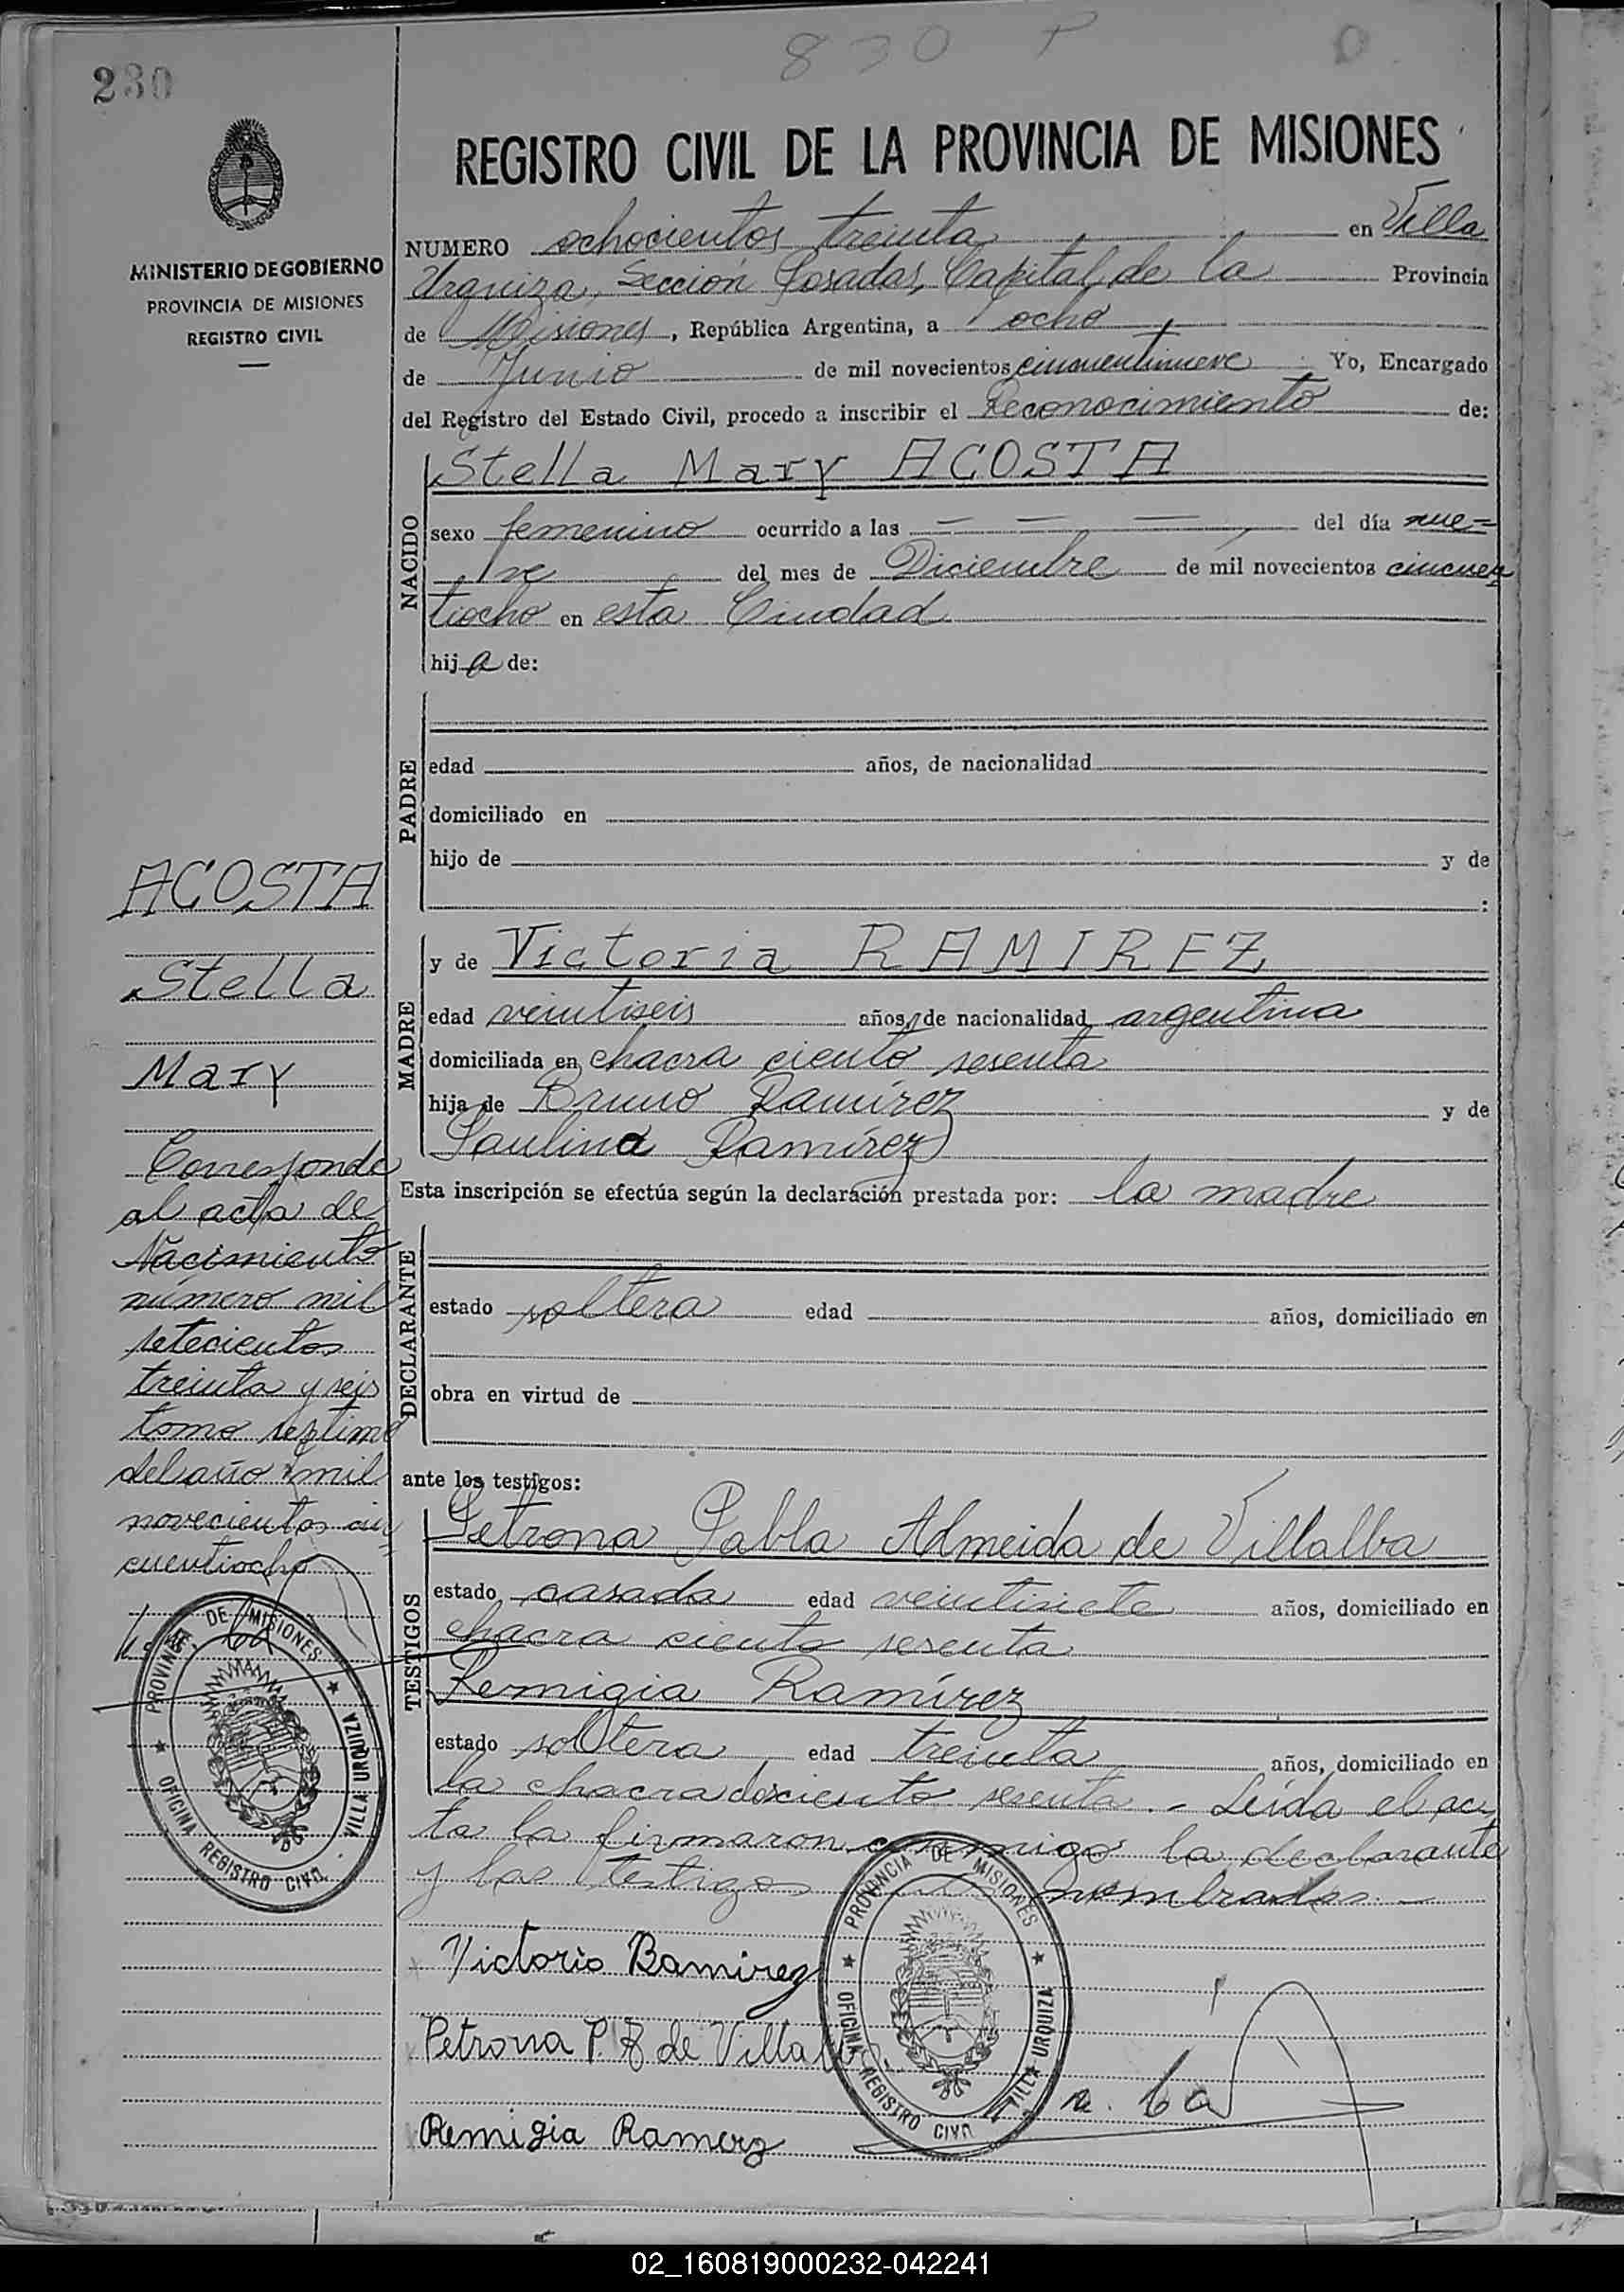 830
230
REGISTRO CIVIL DE LA PROVINCIA DE MISIONES
MINISTERIO DE GOBIERNO
PROVINCIA DE MISIONES
REGISTRO CIVIL
NUMERO ochocientos treinta en Villa
Urquiza, Sección Posadas, Capital de la Provincia
de Misiones, República Argentina, a ocho
de Junio de mil novecientos cincuentinueve Yo, Encargado
del Registro del Estado Civil, procedo a inscribir el Reconocimiento de:
NACIDO
Stella Mary ACOSTA
sexo femenino ocurrido a las — — — , del día nue=
ve del mes de Diciembre de mil novecientos cincuen
tiocho en esta Ciudad
hija de:
PADRE
edad años, de nacionalidad
domiciliado en
hijo de y de
:
MADRE
y de Victoria RAMIREZ
edad veintiseis años, de nacionalidad argentina
domiciliada en chacra ciento sesenta
hija de Bruno Ramírez y de
Paulina Ramírez
Esta inscripción se efectúa según la declaración prestada por: la madre
DECLARANTE
estado soltera edad años, domiciliado en
obra en virtud de
ante los testigos:
TESTIGOS
Petrona Pabla Almeida de Villalba
estado casada edad veintisiete años, domiciliado en
chacra ciento sesenta
Remigia Ramírez
estado soltera edad treinta años, domiciliado en
la chacra doxciento sesenta.- Leída el ac
ta la firmaron conmigo la declarante
y los testigos nombrados.-
Victoria Ramirez
Petrona P. A de Villalba
Remigia Ramerz
ACOSTA
Stella
Mary
Corresponde
al acta de
Nacimiento
número mil
setecientos
treinta y seis
tomo septimo
del año mil
novecientos cin
cuentiocho
PROVINCIA DE MISIONES
OFICINA REGISTRO CIVIL
VILLA URQUIZA
PROVINCIA DE MISIONES
OFICINA REGISTRO CIVIL
VILLA URQUIZA
02_160819000232-042241